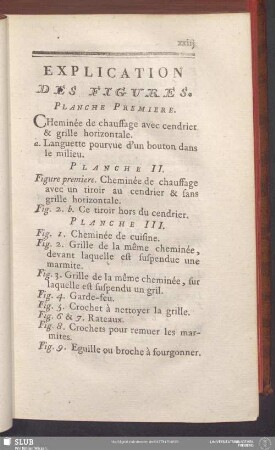 xxiij
EXPLICATION
DES FIGURES.
PLANCHE PREMIERE.
CHeminée de chauffage avec cendrier
& grille horizontale.
a. Languette pourvue d'un bouton dans
le milieu.
PLANCHE II.
Figure premiere. Cheminée de chauffage
avec un tiroir au cendrier & sans
grille horizontale.
Fig. 2. b. Ce tiroir hors du cendrier.
PLANCHE III.
Fig. 1. Cheminée de cuisine.
Fig. 2. Grille de la même cheminée,
devant laquelle est suspendue une
marmite.
Fig. 3. Grille de la même cheminée, sur
laquelle est suspendu un gril.
Fig. 4. Garde-feu.
Fig. 5. Crochet à nettoyer la grille.
Fig. 6 & 7. Rateaux.
Fig. 8. Crochets pour remuer les mar-
mites.
Fig. 9. Eguille ou broche à fourgonner.
SLUB
Wir führen Wissen.